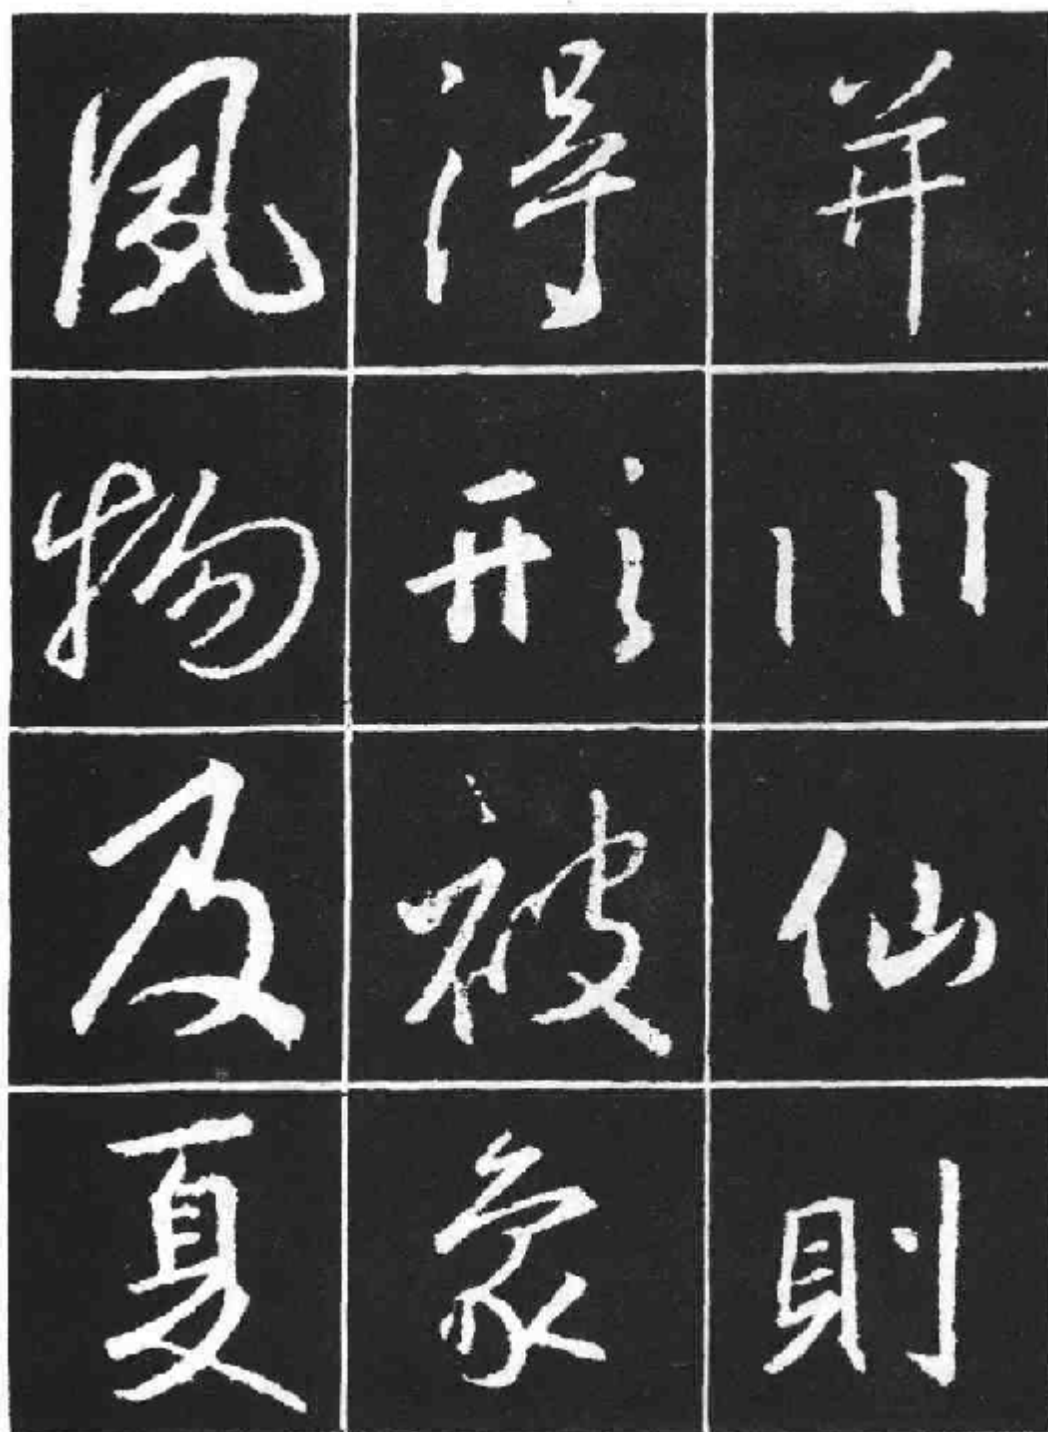 并川仙則
得形被象
風物及夏